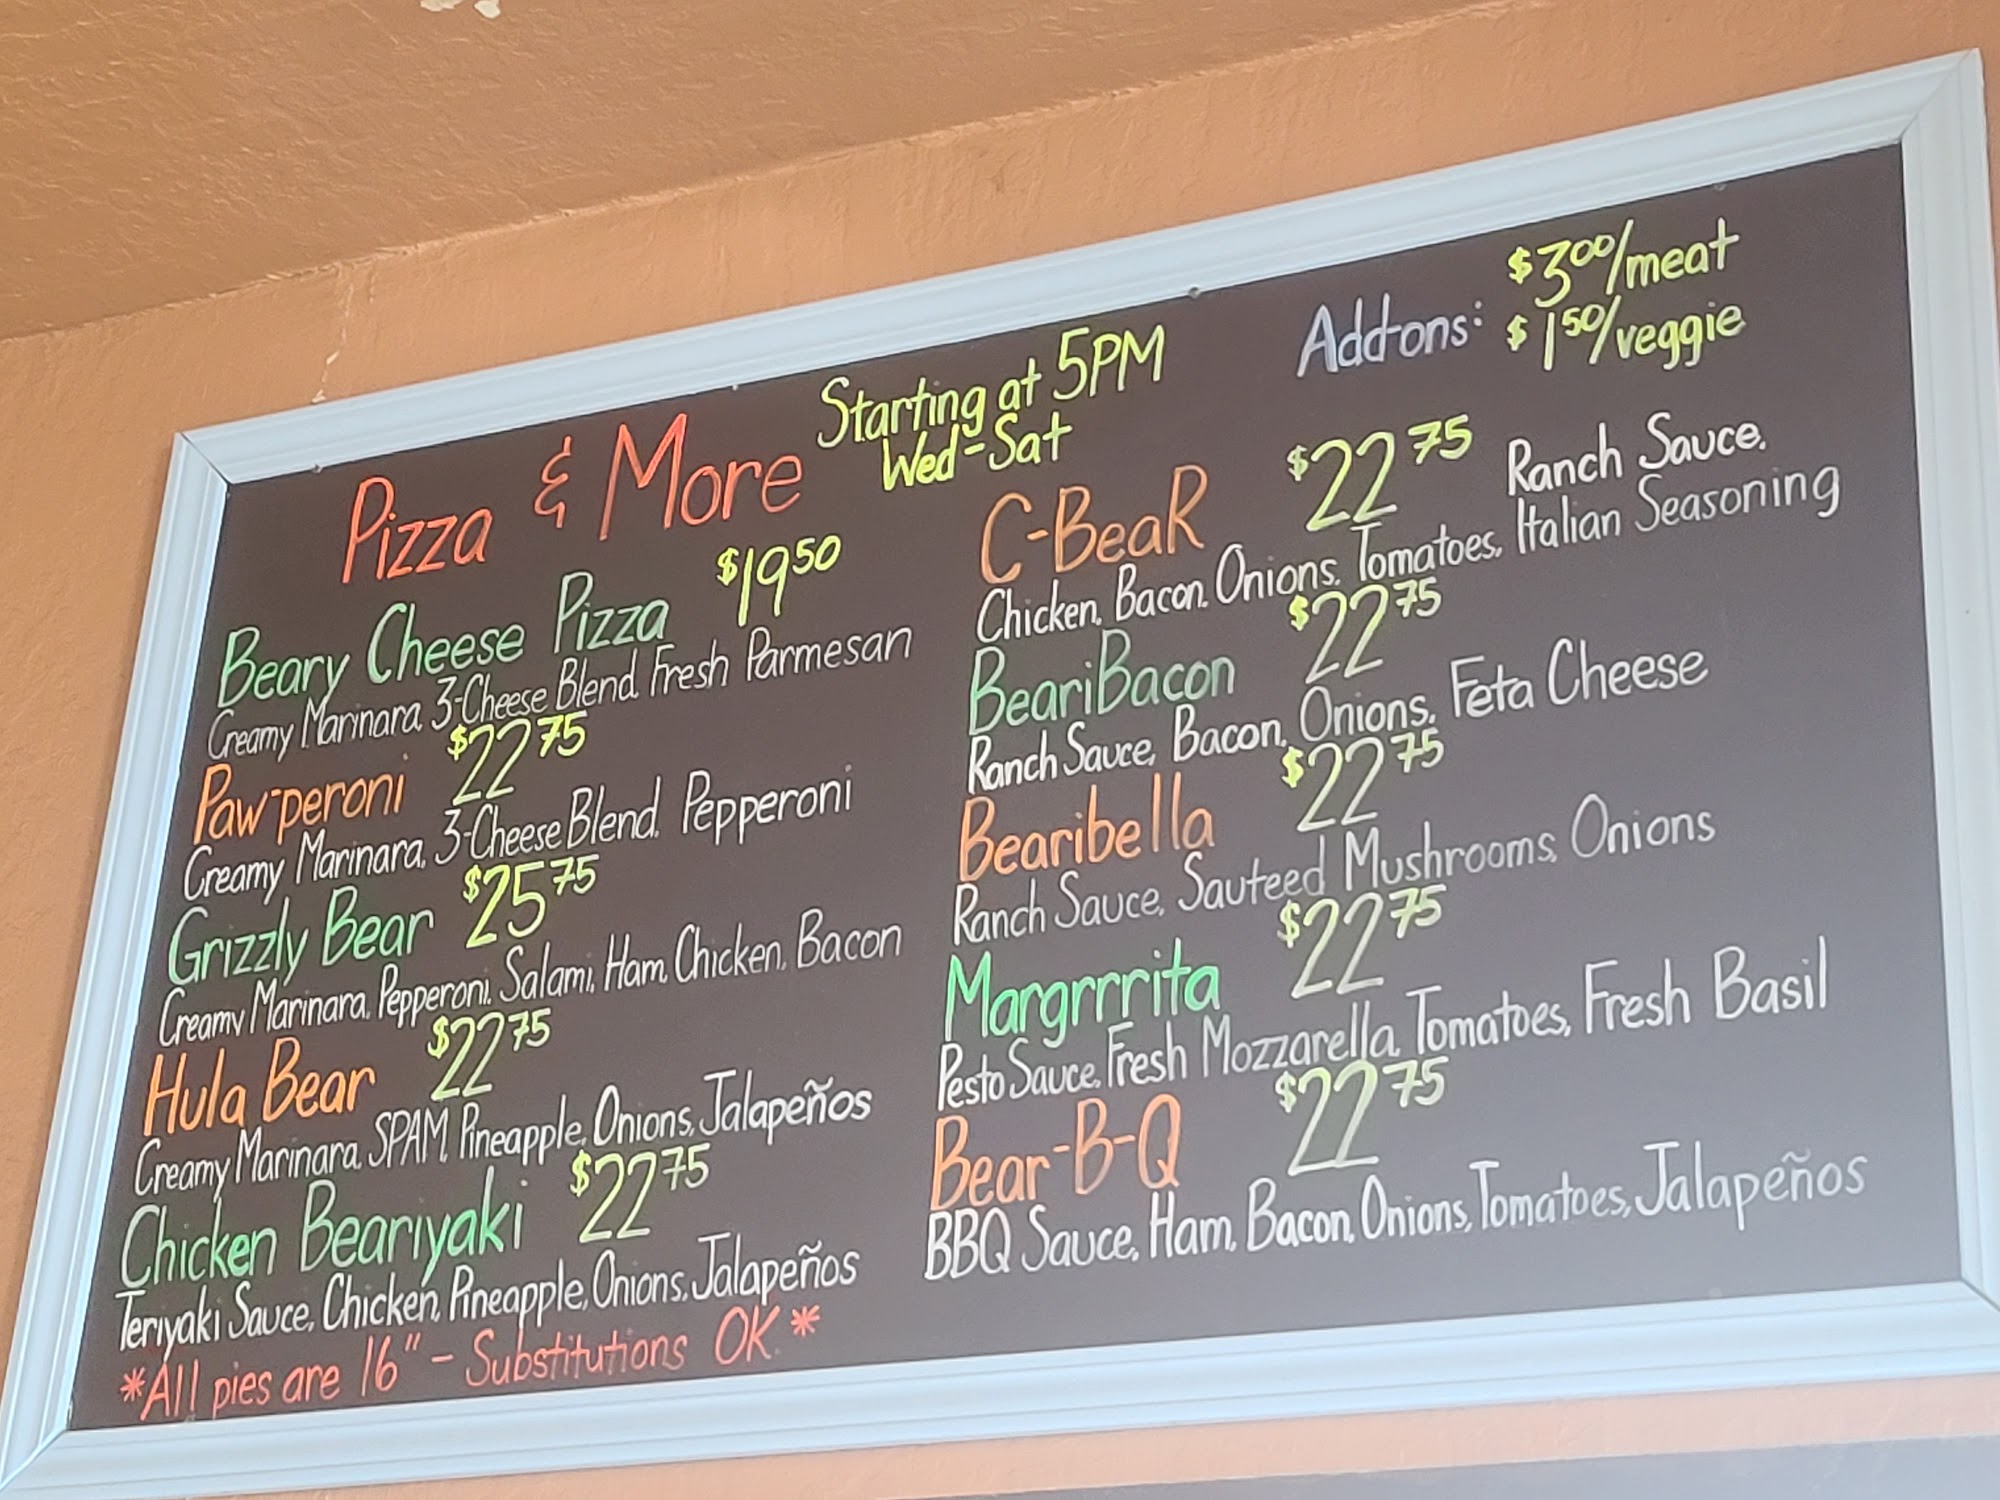 Pizza & More
Starting at 5PM
Wed-Sat
Add-ons: $3.00/meat
$1.50/veggie
Beary Cheese Pizza $19.50
Creamy Marinara, 3-Cheese Blend, Fresh Parmesan
Paw-peroni $22.75
Creamy Marinara, 3-Cheese Blend, Pepperoni
Grizzly Bear $25.75
Creamy Marinara, Pepperoni, Salami, Ham, Chicken, Bacon
Hula Bear $22.75
Creamy Marinara, SPAM, Pineapple, Onions, Jalapeños
Chicken Beariyaki $22.75
Teriyaki Sauce, Chicken, Pineapple, Onions, Jalapeños
*All pies are 16" - Substitutions OK*
C-BeaR $22.75 Ranch Sauce,
Chicken, Bacon, Onions, Tomatoes, Italian Seasoning
BeariBacon $22.75
Ranch Sauce, Bacon, Onions, Feta Cheese
Bearibella $22.75
Ranch Sauce, Sauteed Mushrooms, Onions
Margrrrita $22.75
Pesto Sauce, Fresh Mozzarella, Tomatoes, Fresh Basil
Bear-B-Q $22.75
BBQ Sauce, Ham, Bacon, Onions, Tomatoes, Jalapeños